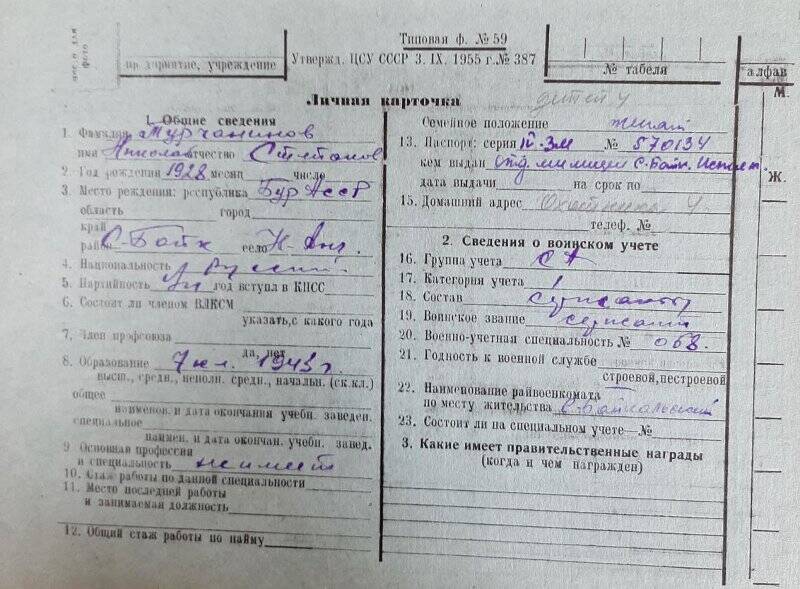 место для
фото
предприятие, учреждение
Типовая ф. № 59
Утвержд. ЦСУ СССР 3. IX. 1955 г. № 387
№ табеля
алфав
М.
Ж.
Личная карточка
1. Общие сведения
1. Фамилия Мурчанинов
имя Николай отчество Степанов
2. Год рождения 1928 месяц число
3. Место рождения: республика Бур АССР
область город
край
район С-Байк село Н-Анг.
4. Национальность русский
5. Партийность год вступл в КПСС
6. Состоит ли членом ВЛКСМ
указать, с какого года
7. Член профсоюза
да, нет
8. Образование 7 кл. 1943 г.
высш., средн., неполн. средн., начальн. (ск. кл.)
общее
наименов. и дата окончания учебн. заведен.
специальное
наимен. и дата окончан. учебн. завед.
9 Основная профессия
и специальность не имеет
10. Стаж работы по данной специальности
11. Место последней работы
и занимаемая должность
12. Общий стаж работы по найму
детей 4
Семейное положение женат
13. Паспорт: серия № 570134
кем выдан отд. милиции С. Байк.
дата выдачи на срок по
15. Домашний адрес
телеф. №
2. Сведения о воинском учете
16. Группа учета СА
17. Категория учета 1
18. Состав сержанты
19. Воинское звание сержант
20. Военно-учетная специальность № 068.
21. Годность к военной службе
строевой, нестроевой
22. Наименование райвоенкомата
по месту жительства С. Байкальский
23. Состоит ли на специальном учете №
3. Какие имеет правительственные награды
(когда и чем награжден)